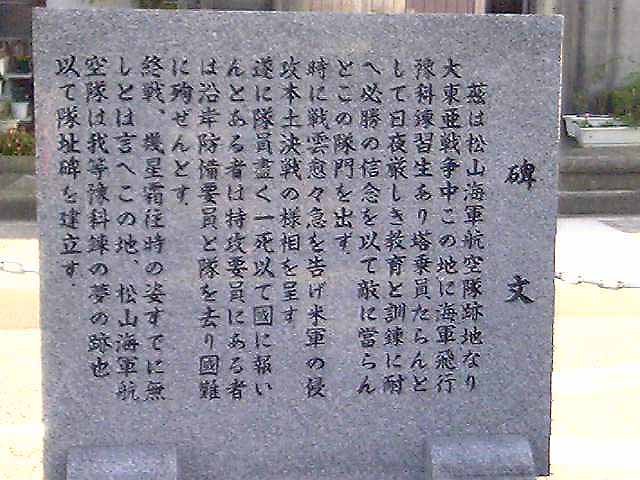 碑文
茲は松山海軍航空隊跡地なり
大東亜戦争中この地に海軍飛行
豫科練習生あり塔乗員たらんと
して日夜厳しき教育と訓練に耐
へ必勝の信念を以て敵に當らん
とこの隊門を出ず
時に戦雲愈々急を告げ米軍の侵
攻本土決戦の様相を呈す
遂に隊員盡く一死以て國に報い
んとある者は特攻要員にある者
は沿岸防備要員と隊を去り國難
に殉ぜんとす
終戦、幾星霜往時の姿すでに無
しとは言へこの地、松山海軍航
空隊は我等豫科錬の夢の跡也
以て隊址碑を建立す